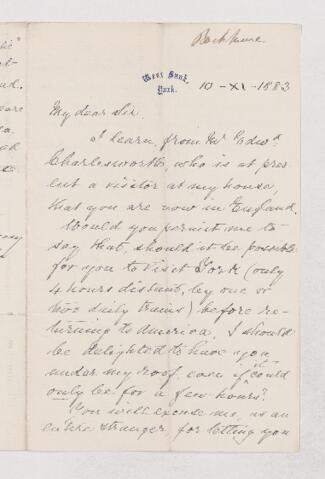 West Bank,
York.
10 - XI - 1883
My dear Sir.
I learn, from Mr Edwd
Charlesworth, who is at pres
ent a visitor at my house,
that you are now in England.
Would you permit me to
say that, should it be possible
for you to visit York (only
4 hours distant, by one or
two daily trains) before re-
turning to America, I should
be delighted to have you
under my roof, even if it could
only be for a few hours?
You will excuse me, as an
entire stranger, for letting you